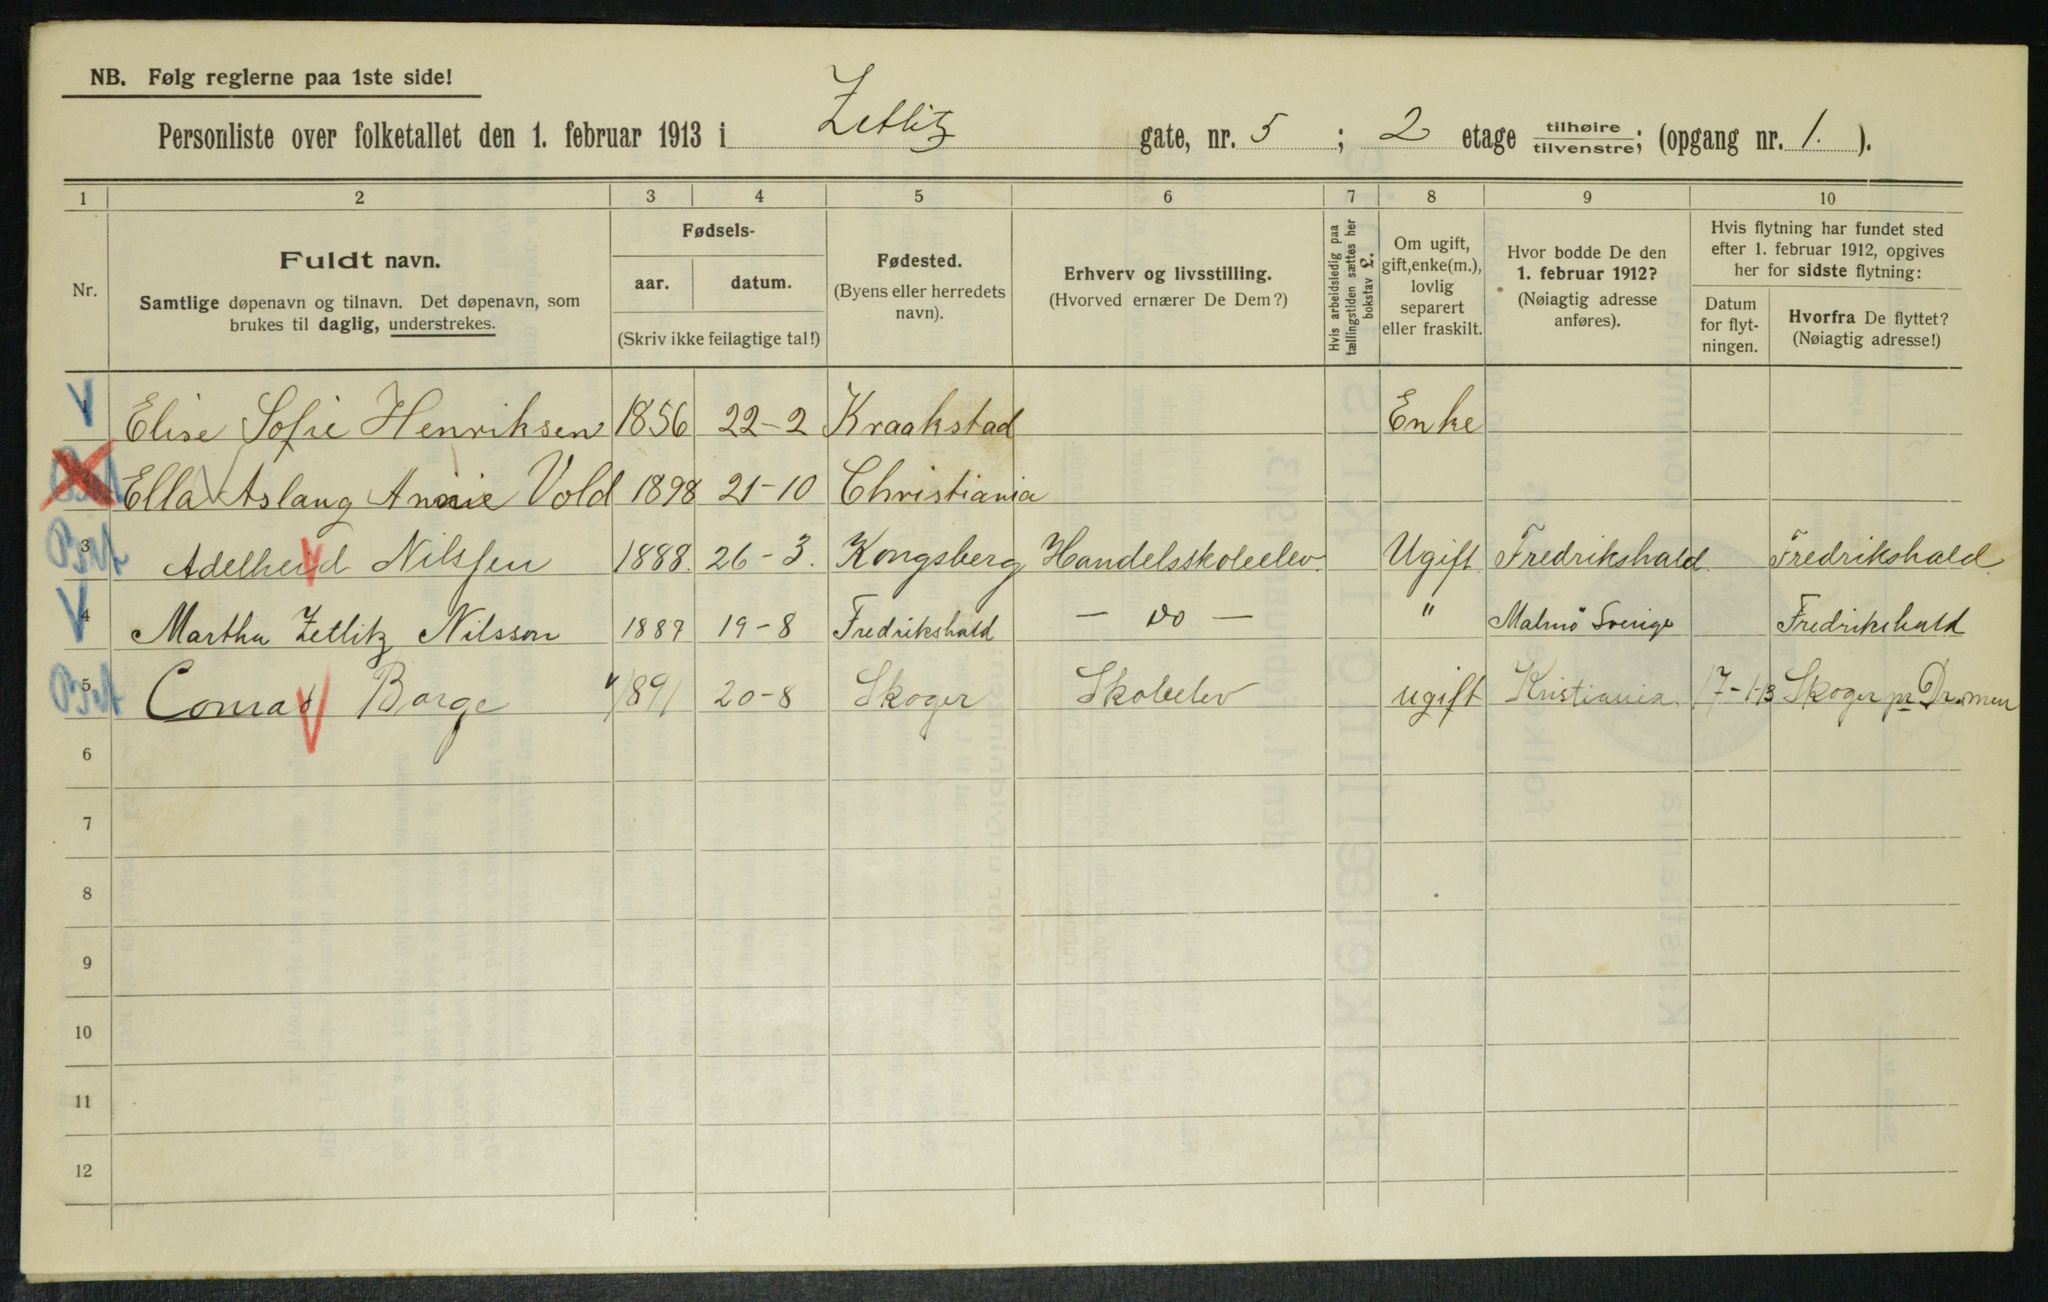 NB. Følg reglerne paa 1ste side!
Personliste over folketallet den 1. februar 1913 i Zetlitz gate, nr. 5 ; 2 etage tilhøire / tilvenstre; (opgang nr. 1. ).
1 2 3 4 5 6 7 8 9 10
Nr.
Fuldt navn.
Samtlige døpenavn og tilnavn. Det døpenavn, som
brukes til daglig, understrekes.
Fødsels-
aar. datum.
(Skriv ikke feilagtige tal!)
Fødested.
(Byens eller herredets
navn).
Erhverv og livsstilling.
(Hvorved ernærer De Dem?)
Hvis arbeidsledig paa
tællingstiden sættes her
bokstav L.
Om ugift,
gift, enke(m.),
lovlig
separert
eller fraskilt.
Hvor bodde De den
1. februar 1912?
(Nøiagtig adresse
anføres).
Hvis flytning har fundet sted
efter 1. februar 1912, opgives
her for sidste flytning:
Datum
for flyt-
ningen.
Hvorfra De flyttet?
(Nøiagtig adresse!)
1 Elise Sofie Henriksen 1856 22-2 Kraakstad Enke
Ella Aslaug Annie Vold 1898 21-10 Christiania
3 Adelheid Nilssen 1888. 26-3. Kongsberg Handelsskoleelev. Ugift Fredrikshald. Fredrikshald.
4 Martha Zetlitz Nilsson 1889 19-8 Fredrikshald — do — " Malmö Sverige Fredrikshald
5 Conrad Borge 1891 20-8 Skoger Skoleelev ugift Kristiania 17-1-13 Skoger pr Drammen
6
7
8
9
10
11
12